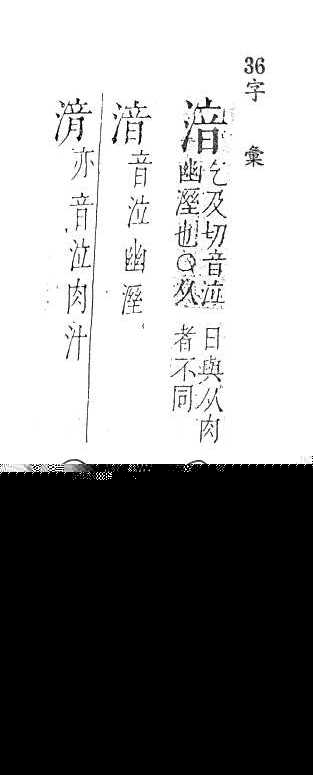 36字彙
湆
乞及切音泣
幽溼也○从
日與从肉
者不同
湆音泣幽溼
湇亦音泣肉汁